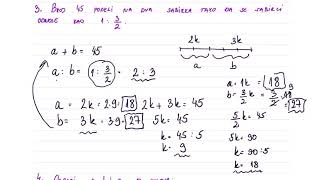 3. BROJ 45 PODELI NA DVA SABIRKA TAKO DA SE SABIRCI
ODNOSE KAO 1 : 3/2
a + b = 45
a : b = 1 : 3/2 = 2 : 3
2k 3k
a b
a = 2k = 2·9 = 18
b = 3k = 3·9 = 27
2k + 3k = 45
5k = 45
k = 45 : 5
k = 9
a = 1k = 18
b = 3/2 k = 3/2 · 18 9
= 27
5/2 k = 45
5k = 90
k = 90 : 5
k = 18
4.